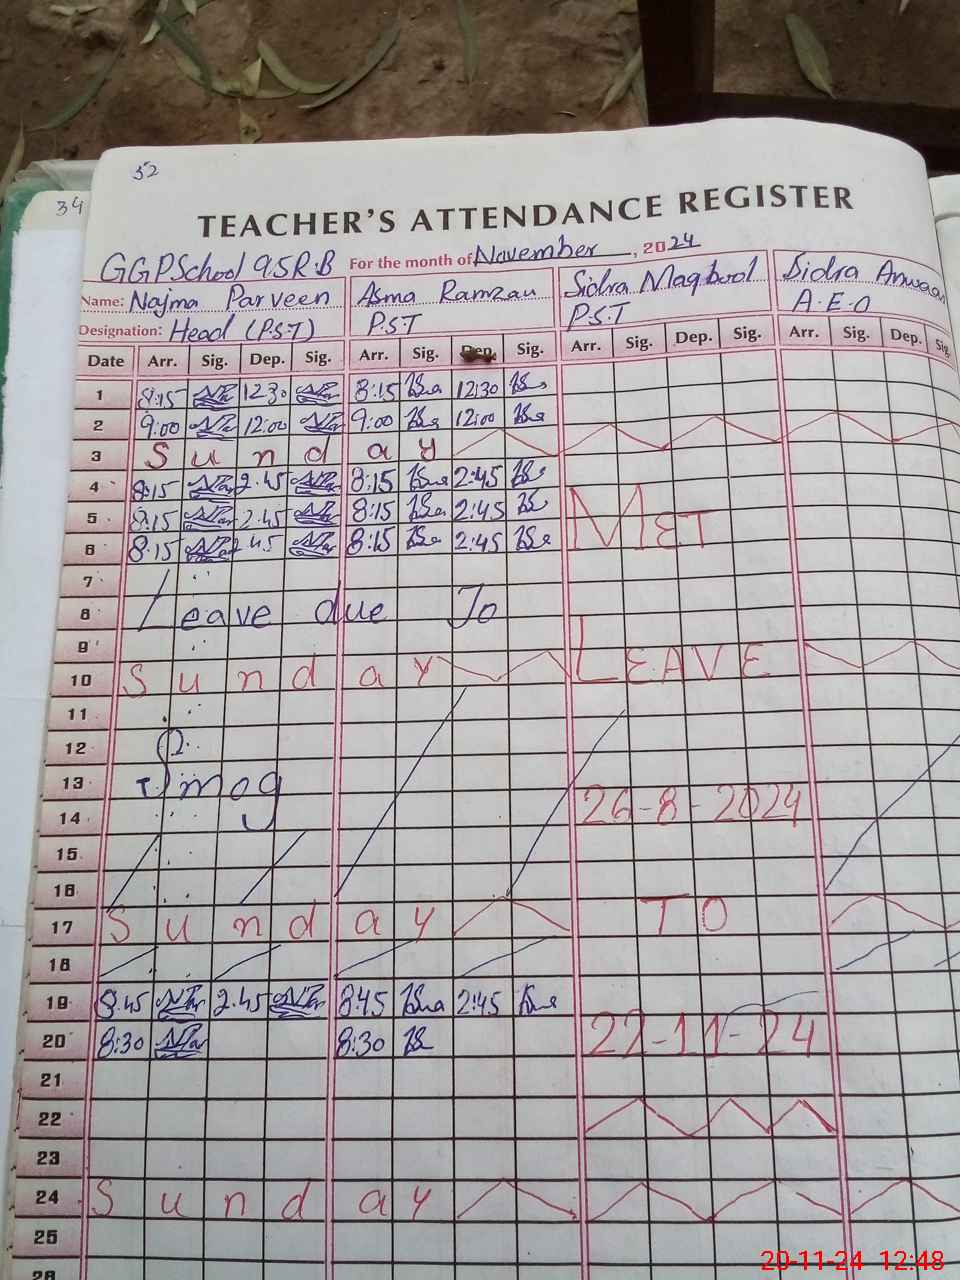 52
34
TEACHER'S ATTENDANCE REGISTER
GGPSchool 95R.B For the month of November, 2024
Name: Najma Parveen Asma Ramzan Sidra Maqbool Sidra Anwaar
Designation: Head (P.S.T) P.S.T P.S.T A.E.O
Date Arr. Sig. Dep. Sig. Arr. Sig. Dep. Sig. Arr. Sig. Dep. Sig. Arr. Sig. Dep. Sig.
1 8:15 12:30 8:15 12:30
2 9:00 12:00 9:00 12:00
3 Sunday
4 8:15 2:45 8:15 2:45
5 8:15 2:45 8:15 2:45 MET
6 8:15 2:45 8:15 2:45
7
8 Leave due To
9
10 Sunday LEAVE
11
12
13 Smog
14 26-8-2024
15
16
17 Sunday TO
18
19 8:45 2:45 8:45 2:45
20 8:30 8:30 22-11-24
21
22
23
24 Sunday
25
26
20-11-24 12:48